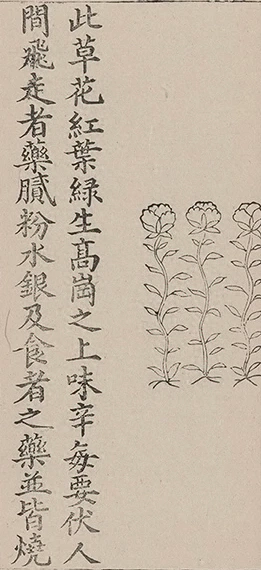 此草花紅葉緑生髙崗之上味辛每要伏人
間飛走者藥膩粉水銀及食者之藥並皆燒